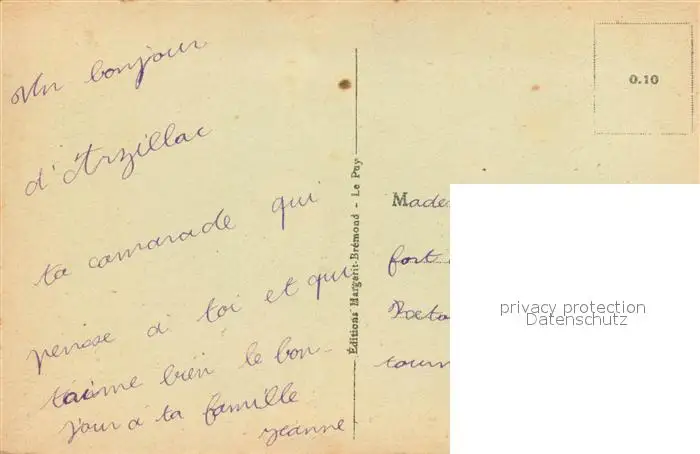 Un bonjour
d'Arzillac
ta camarade qui
pense à toi et qui
t'aime bien le bon-
jour à ta famille
Jeanne
Éditions Margerit-Brémond - Le Puy
0.10
Made
fort
tourn
privacy protection
Datenschutz